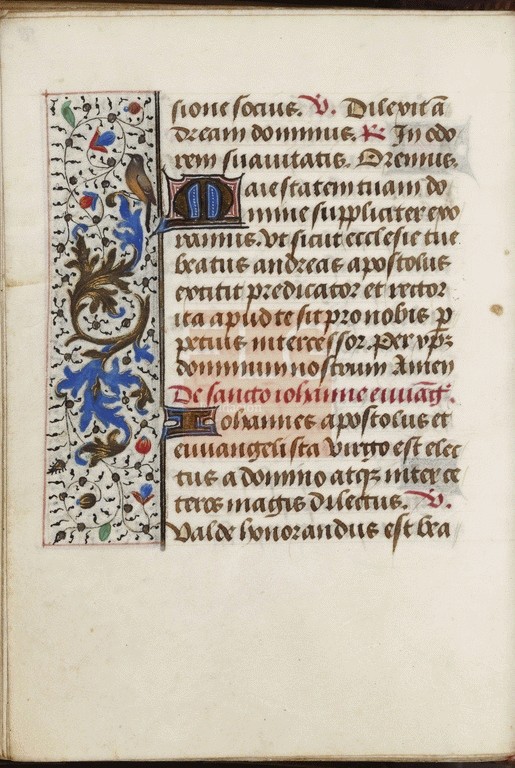 sione socius. V. Dilexit a
dream dominus. R. In odo
rem suavitatis. Oremus.
Maiestatem tuam do
mine suppliciter exo
ramus. Ut sicut ecclesie tue
beatus andreas apostolus
extitit predicator et rector
ita apud te sit pro nobis p
petuus intercessor. Per xpm
dominum nostrum Amen
De sancto iohanne euuāg.
Iohannes apostolus et
euuangelista virgo est elec
tus a domino atqz inter ce
teros magis dilectus. V.
Valde honorandus est bea